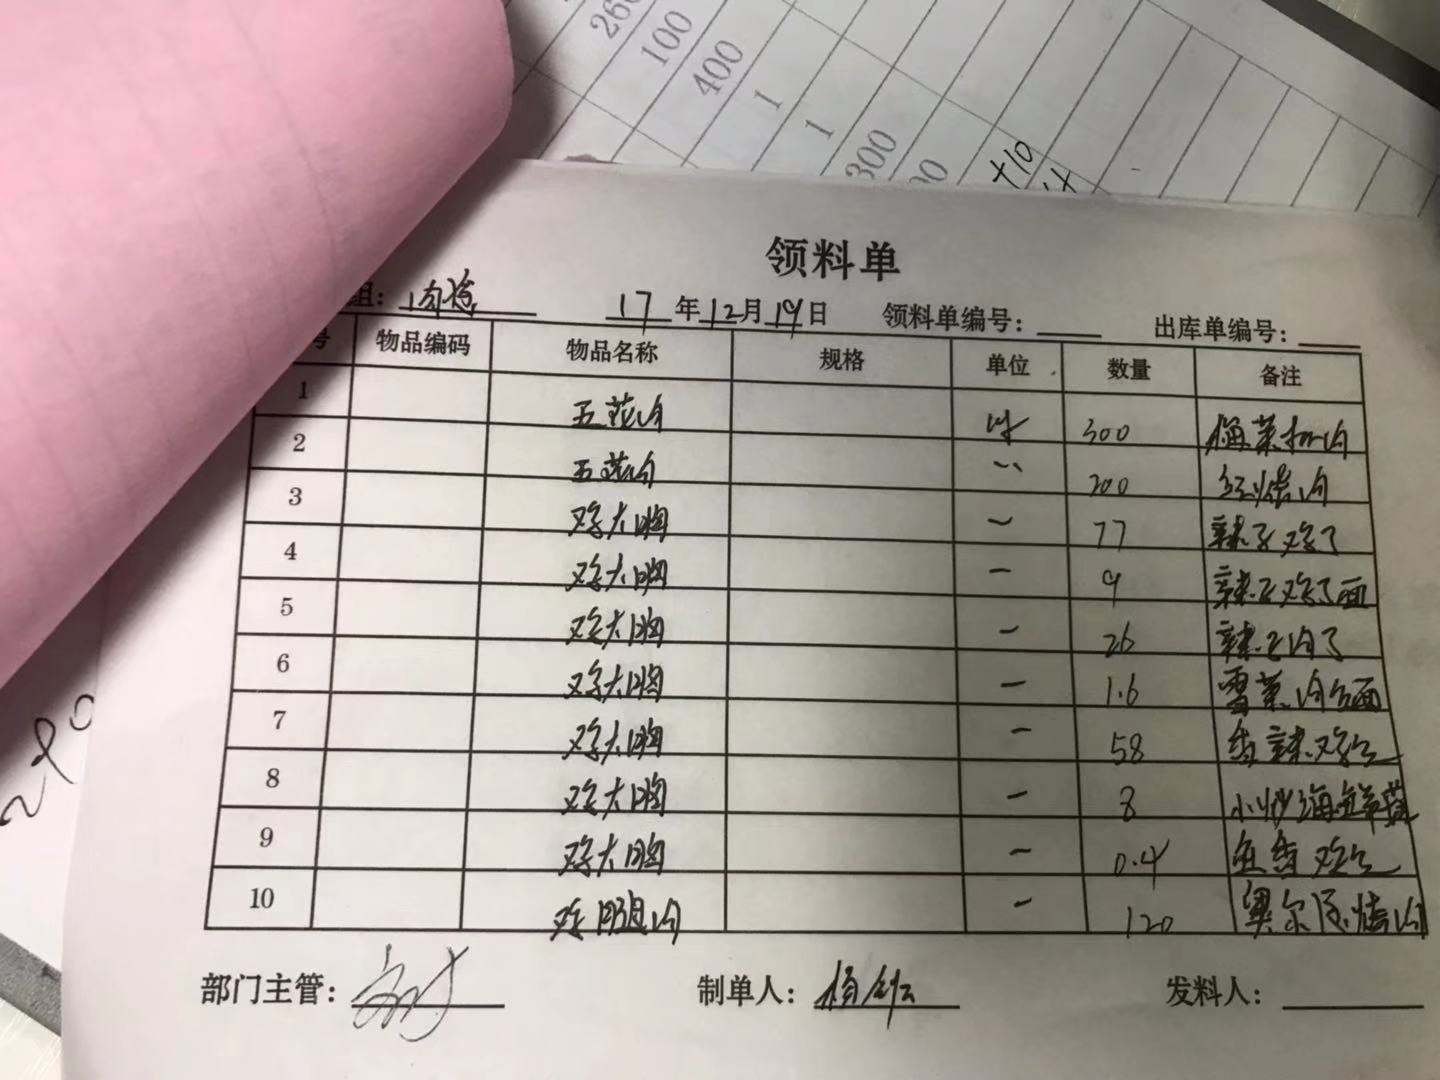 260
100
400
1
1
300
00
+10
领料单
组：
17年12月19日 领料单编号： 出库单编号：
号 物品编码 物品名称 规格 单位 数量 备注
1 五花肉 300 梅菜扣肉
2 五花肉 200 红烧肉
3 鸡大胸 77 辣子鸡丁
4 鸡大胸 9 辣子鸡丁面
5 鸡大胸 26 辣子肉丁
6 鸡大胸 1.6 雪菜肉丝面
7 鸡大胸 58 香辣鸡丝
8 鸡大胸 8 小炒海鲜菇
9 鸡大胸 0.4 鱼香鸡丝
10 鸡腿肉 120 奥尔良烤肉
部门主管： 制单人： 发料人：